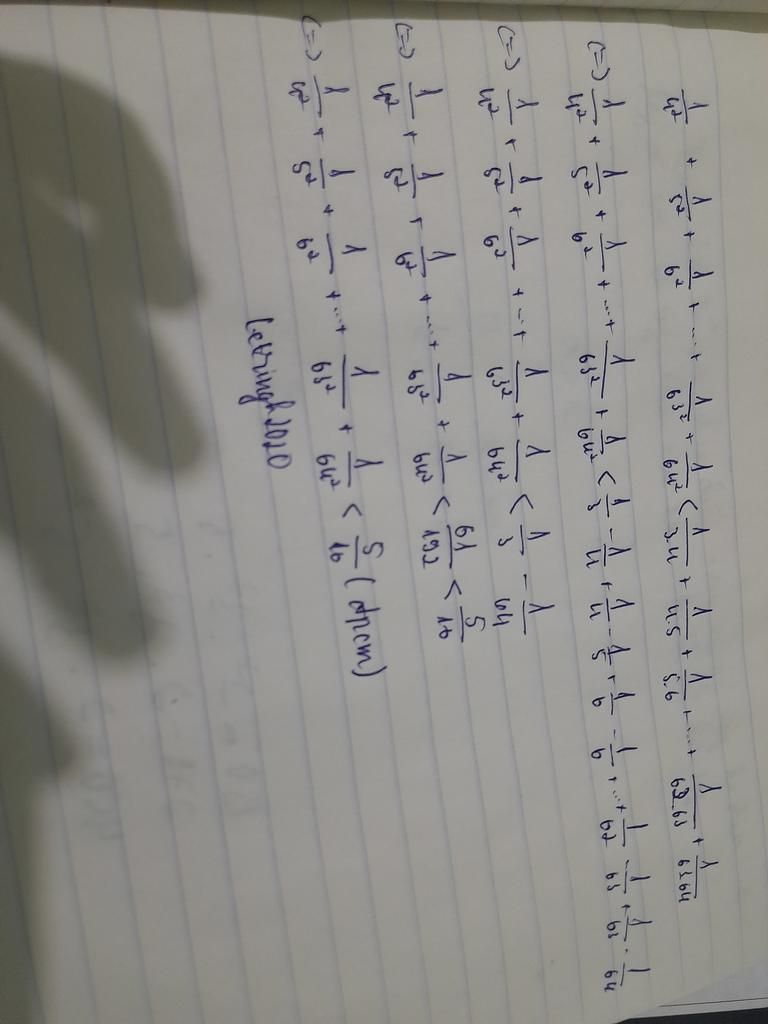 1/4² + 1/5² + 1/6² + ... + 1/63² + 1/64² < 1/3.4 + 1/4.5 + 1/5.6 + ... + 1/62.63 + 1/63.64
(=) 1/4² + 1/5² + 1/6² + ... + 1/63² + 1/64² < 1/3 - 1/4 + 1/4 - 1/5 + 1/6 - 1/6 + ... + 1/62 - 1/63 + 1/63 - 1/64
(=) 1/4² + 1/5² + 1/6² + ... + 1/63² + 1/64² < 1/3 - 1/64
(=) 1/4² + 1/5² + 1/6² + ... + 1/63² + 1/64² < 61/192 < 5/16
(=) 1/4² + 1/5² + 1/6² + ... + 1/63² + 1/64² < 5/16 (đpcm)